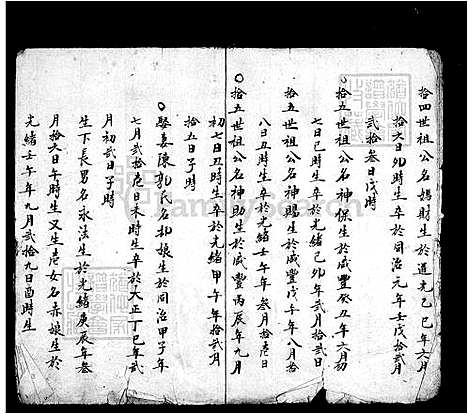 拾四世祖公名錫財生於道光乙巳年六月
拾六日卯時生卒於同治元年壬戌拾貳月
貳拾叁日戌時
○拾五世祖公名神保生於咸豐癸丑年六月初
七日巳時生卒於光緒己卯年貳月貳日
拾五世祖公名神賜生於咸豐戊午年八月拾
八日丑時生卒於光緒壬午年叁月拾壱日
○拾五世祖公名神助生於咸豐丙辰年九月
初七日丑時生卒於光緒甲午年拾貳月
拾五日子時
○娶妻陳郭氏名扣娘生於同治甲子年
七月貳拾壱日未時生卒於大正丁巳年貳
月初貳日子時
生下長男名永法生於光緒庚辰年叁
月拾六日午時生又生壱女名赤娘生於
光緒壬午年九月貳拾九日酉時生
FamilySearch